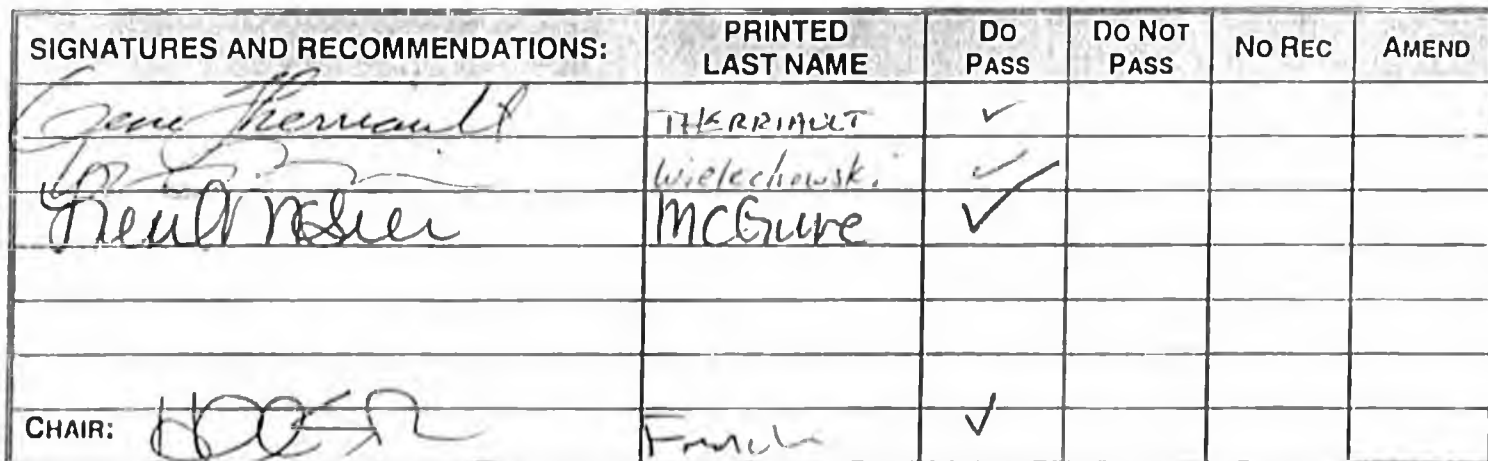 SIGNATURES AND RECOMMENDATIONS: PRINTED LAST NAME DO PASS DO NOT PASS NO REC AMEND
Gene Therriault THERRIAULT ✓
Wielechowski ✓
McGuire ✓
CHAIR: French ✓